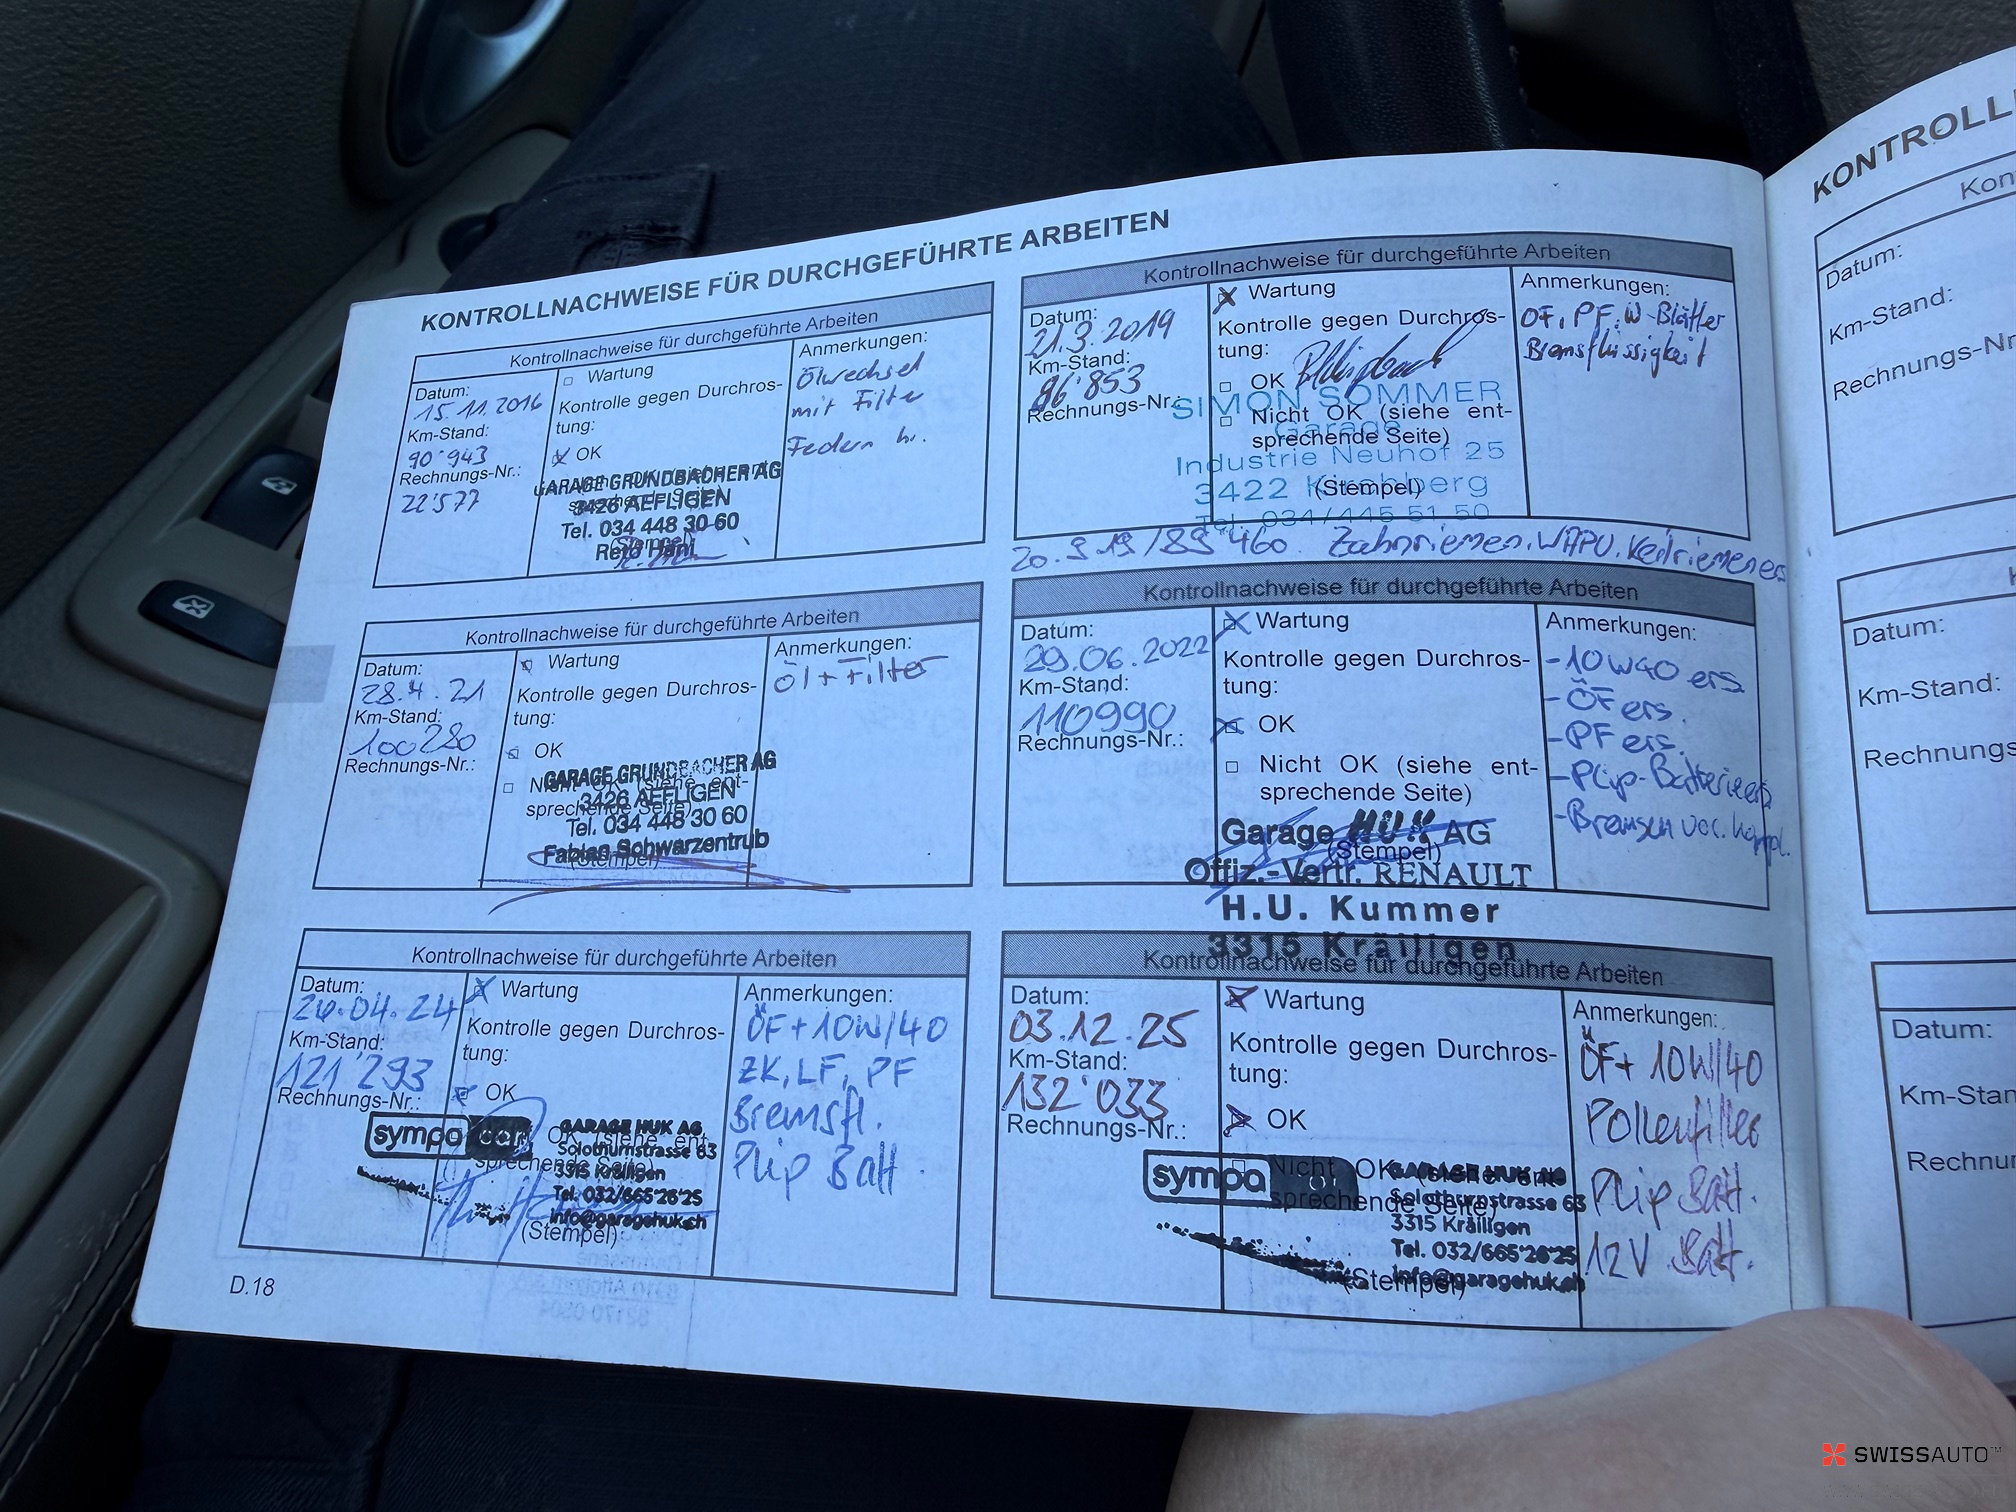 KONTROLLNACHWEISE FÜR DURCHGEFÜHRTE ARBEITEN
Kontrollnachweise für durchgeführte Arbeiten
Datum:
15.11.2016
Km-Stand:
90'943
Rechnungs-Nr.:
22'577
Wartung
Kontrolle gegen Durchros-
tung:
OK
GARAGE GRUNDBACHER AG
3426 AEFLIGEN
Tel. 034 448 30 60
(Stempel)
Reto Häni
Anmerkungen:
Ölwechsel
mit Filter
Federn h.
Kontrollnachweise für durchgeführte Arbeiten
Datum:
21.3.2019
Km-Stand:
96'853
Rechnungs-Nr.:
Wartung
Kontrolle gegen Durchros-
tung:
OK
Nicht OK (siehe ent-
sprechende Seite)
SIMON SOMMER
Garage
Industrie Neuhof 25
3422 Kirchberg
(Stempel)
Tel. 034/445 51 50
Anmerkungen:
ÖF, PF, W-Blätter
Bremsflüssigkeit
20.9.19/89'460 Zahnriemen, WAPU, Keilriemen ers
Kontrollnachweise für durchgeführte Arbeiten
Datum:
28.4.21
Km-Stand:
100280
Rechnungs-Nr.:
Wartung
Kontrolle gegen Durchros-
tung:
OK
Nicht OK (siehe ent-
sprechende Seite)
GARAGE GRUNDBACHER AG
3426 AEFLIGEN
Tel. 034 448 30 60
Fabian Schwarzentrub
(Stempel)
Anmerkungen:
Öl + Filter
Kontrollnachweise für durchgeführte Arbeiten
Datum:
29.06.2022
Km-Stand:
110990
Rechnungs-Nr.:
Wartung
Kontrolle gegen Durchros-
tung:
OK
Nicht OK (siehe ent-
sprechende Seite)
Garage HUK AG
(Stempel)
Offiz.-Vertr. RENAULT
H.U. Kummer
3315 Kräiligen
Anmerkungen:
-10W40 ers.
-ÖF ers.
-PF ers.
-Plip-Batterie ers
-Bremsen vor. kompl.
Kontrollnachweise für durchgeführte Arbeiten
Datum:
26.04.24
Km-Stand:
121'293
Rechnungs-Nr.:
Wartung
Kontrolle gegen Durchros-
tung:
OK
OK (siehe ent-
sprechende Seite)
sympa car
GARAGE HUK AG
Solothurnstrasse 63
3315 Kräiligen
Tel. 032/665'26'25
info@garagehuk.ch
(Stempel)
Anmerkungen:
ÖF + 10W/40
ZK, LF, PF
Bremsfl.
Plip Batt.
Kontrollnachweise für durchgeführte Arbeiten
Datum:
03.12.25
Km-Stand:
132'033
Rechnungs-Nr.:
Wartung
Kontrolle gegen Durchros-
tung:
OK
Nicht OK (siehe ent-
sprechende Seite)
sympa
GARAGE HUK AG
Solothurnstrasse 63
3315 Kräiligen
Tel. 032/665'26'25
info@garagehuk.ch
(Stempel)
Anmerkungen:
ÖF + 10W/40
Pollenfilter
Plip Batt.
12V Batt.
D.18
KONTROLL
Kon
Datum:
Km-Stand:
Rechnungs-Nr
K
Datum:
Km-Stand:
Rechnungs
Datum:
Km-Stan
Rechnu
SWISSAUTO™